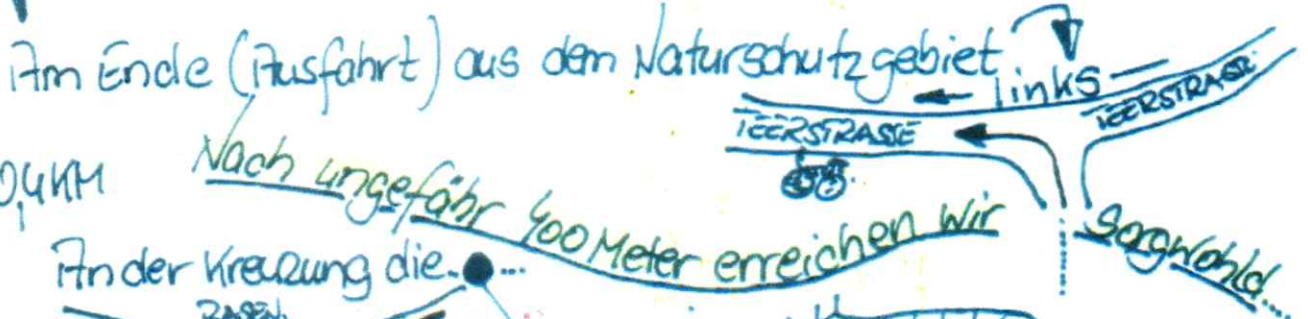 Am Ende (Ausfahrt) aus dem Naturschutzgebiet links
TEERSTRASSE
TEERSTRASSE
0,4 KM
Nach ungefähr 400 Meter erreichen wir Sorgwohld...
An der Kreuzung die...
RASEN